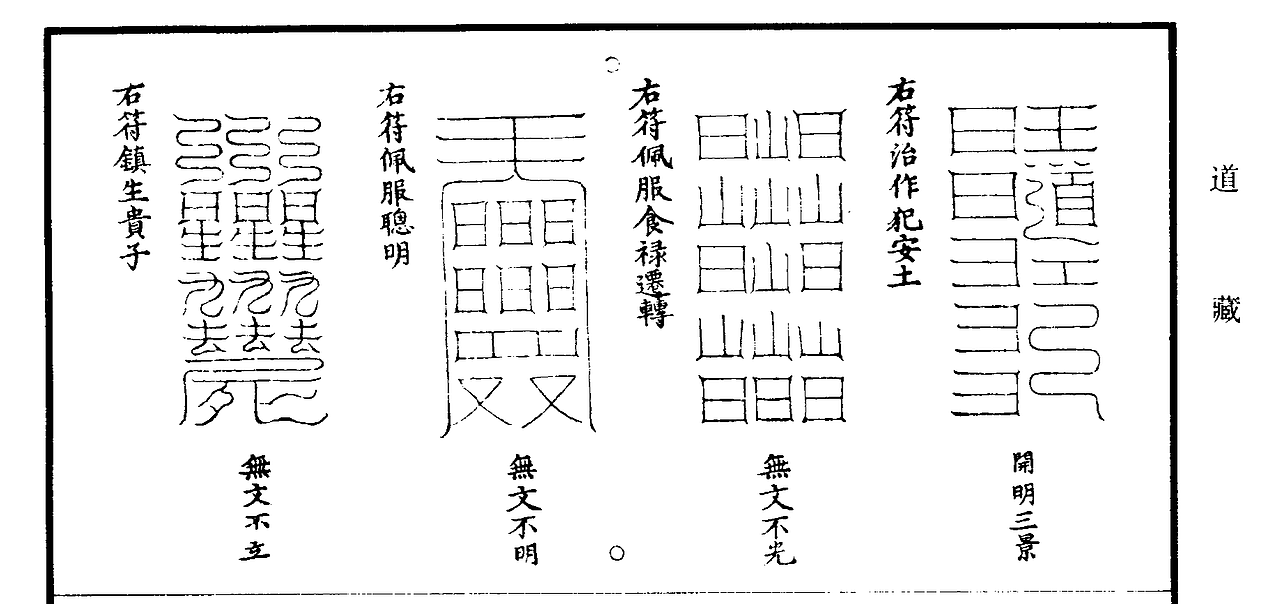 道藏
開明三景
右符治作犯安土
無文不光
右符佩服食禄遷轉
無文不明
右符佩服聰明
無文不立
右符鎮生貴子